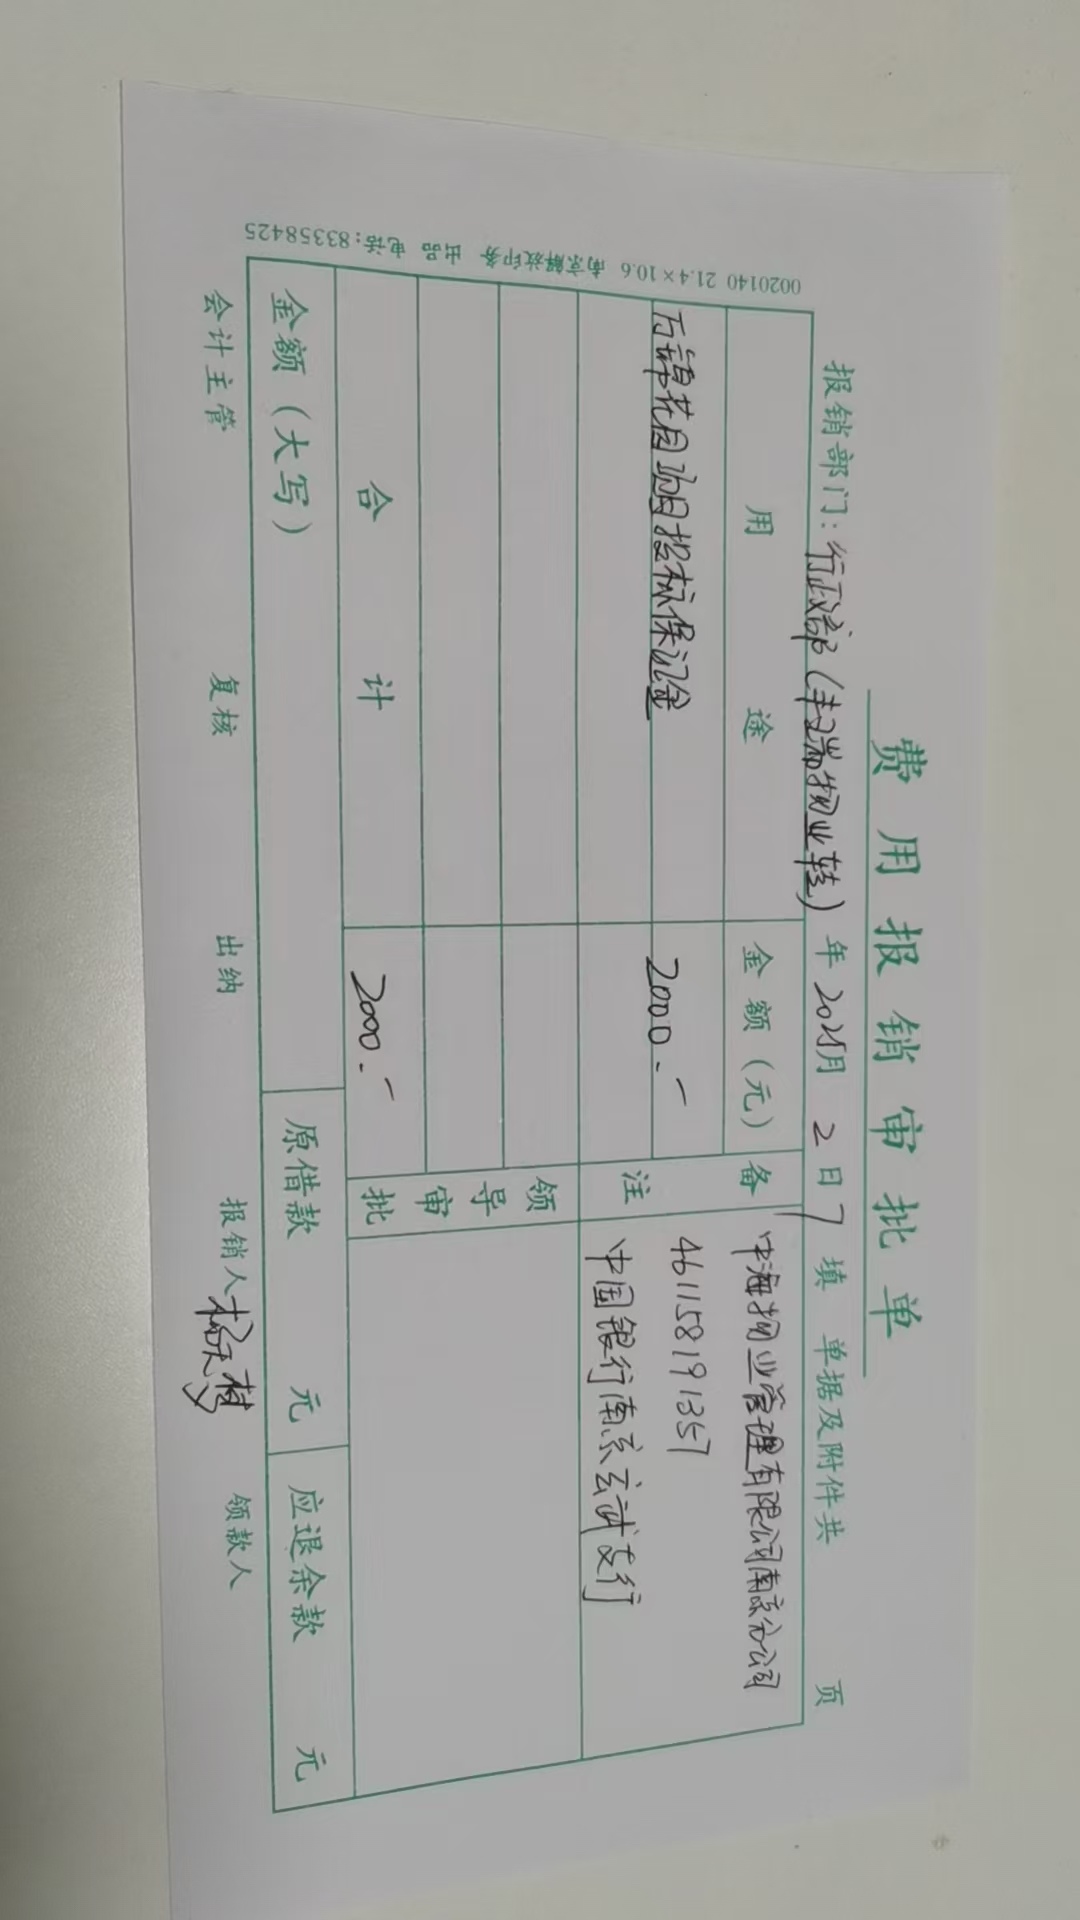 费用报销审批单
报销部门：行政部（丰瑞物业转） 年2025月 2 日7 填 单据及附件共 页
用途 金额（元） 备注 中海物业管理有限公司南京分公司
万锦花园项目投标保证金 2000.- 461158191357
中国银行南京玄武支行
领导审批
合计 2000.-
金额（大写） 原借款 元 应退余款 元
会计主管 复核 出纳 报销人 领款人
0020140 21.4×10.6 南京解放印务 出品 电话:83358425